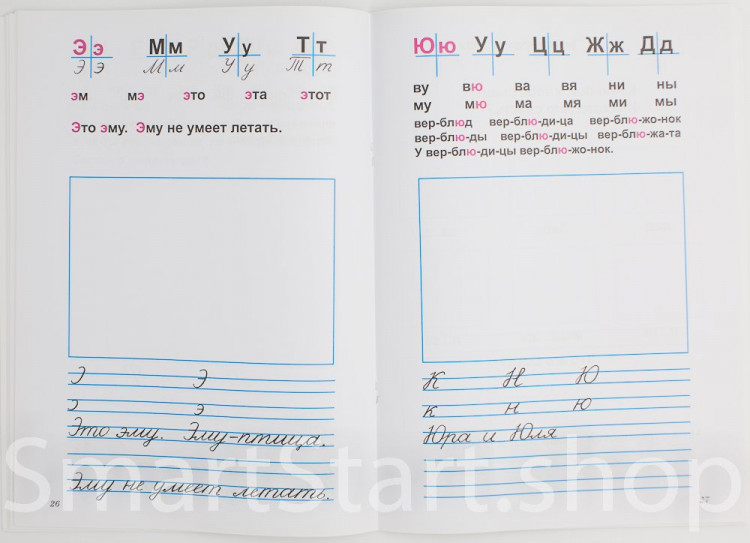 Э э М м У у Т т
Э э М м У у Т т
эм мэ это эта этот
Это эму. Эму не умеет летать.
Э Э
э э
Это эму. Эму-птица.
Эму не умеет летать.
26
Ю ю У у Ц ц Ж ж Д д
ву вю ва вя ни ны
му мю ма мя ми мы
вер-блюд вер-блю-ди-ца вер-блю-жо-нок
вер-блю-ды вер-блю-ди-цы вер-блю-жа-та
У вер-блю-ди-цы вер-блю-жо-нок.
К Н Ю
к н ю
Юра и Юля
27
SmartStart.shop